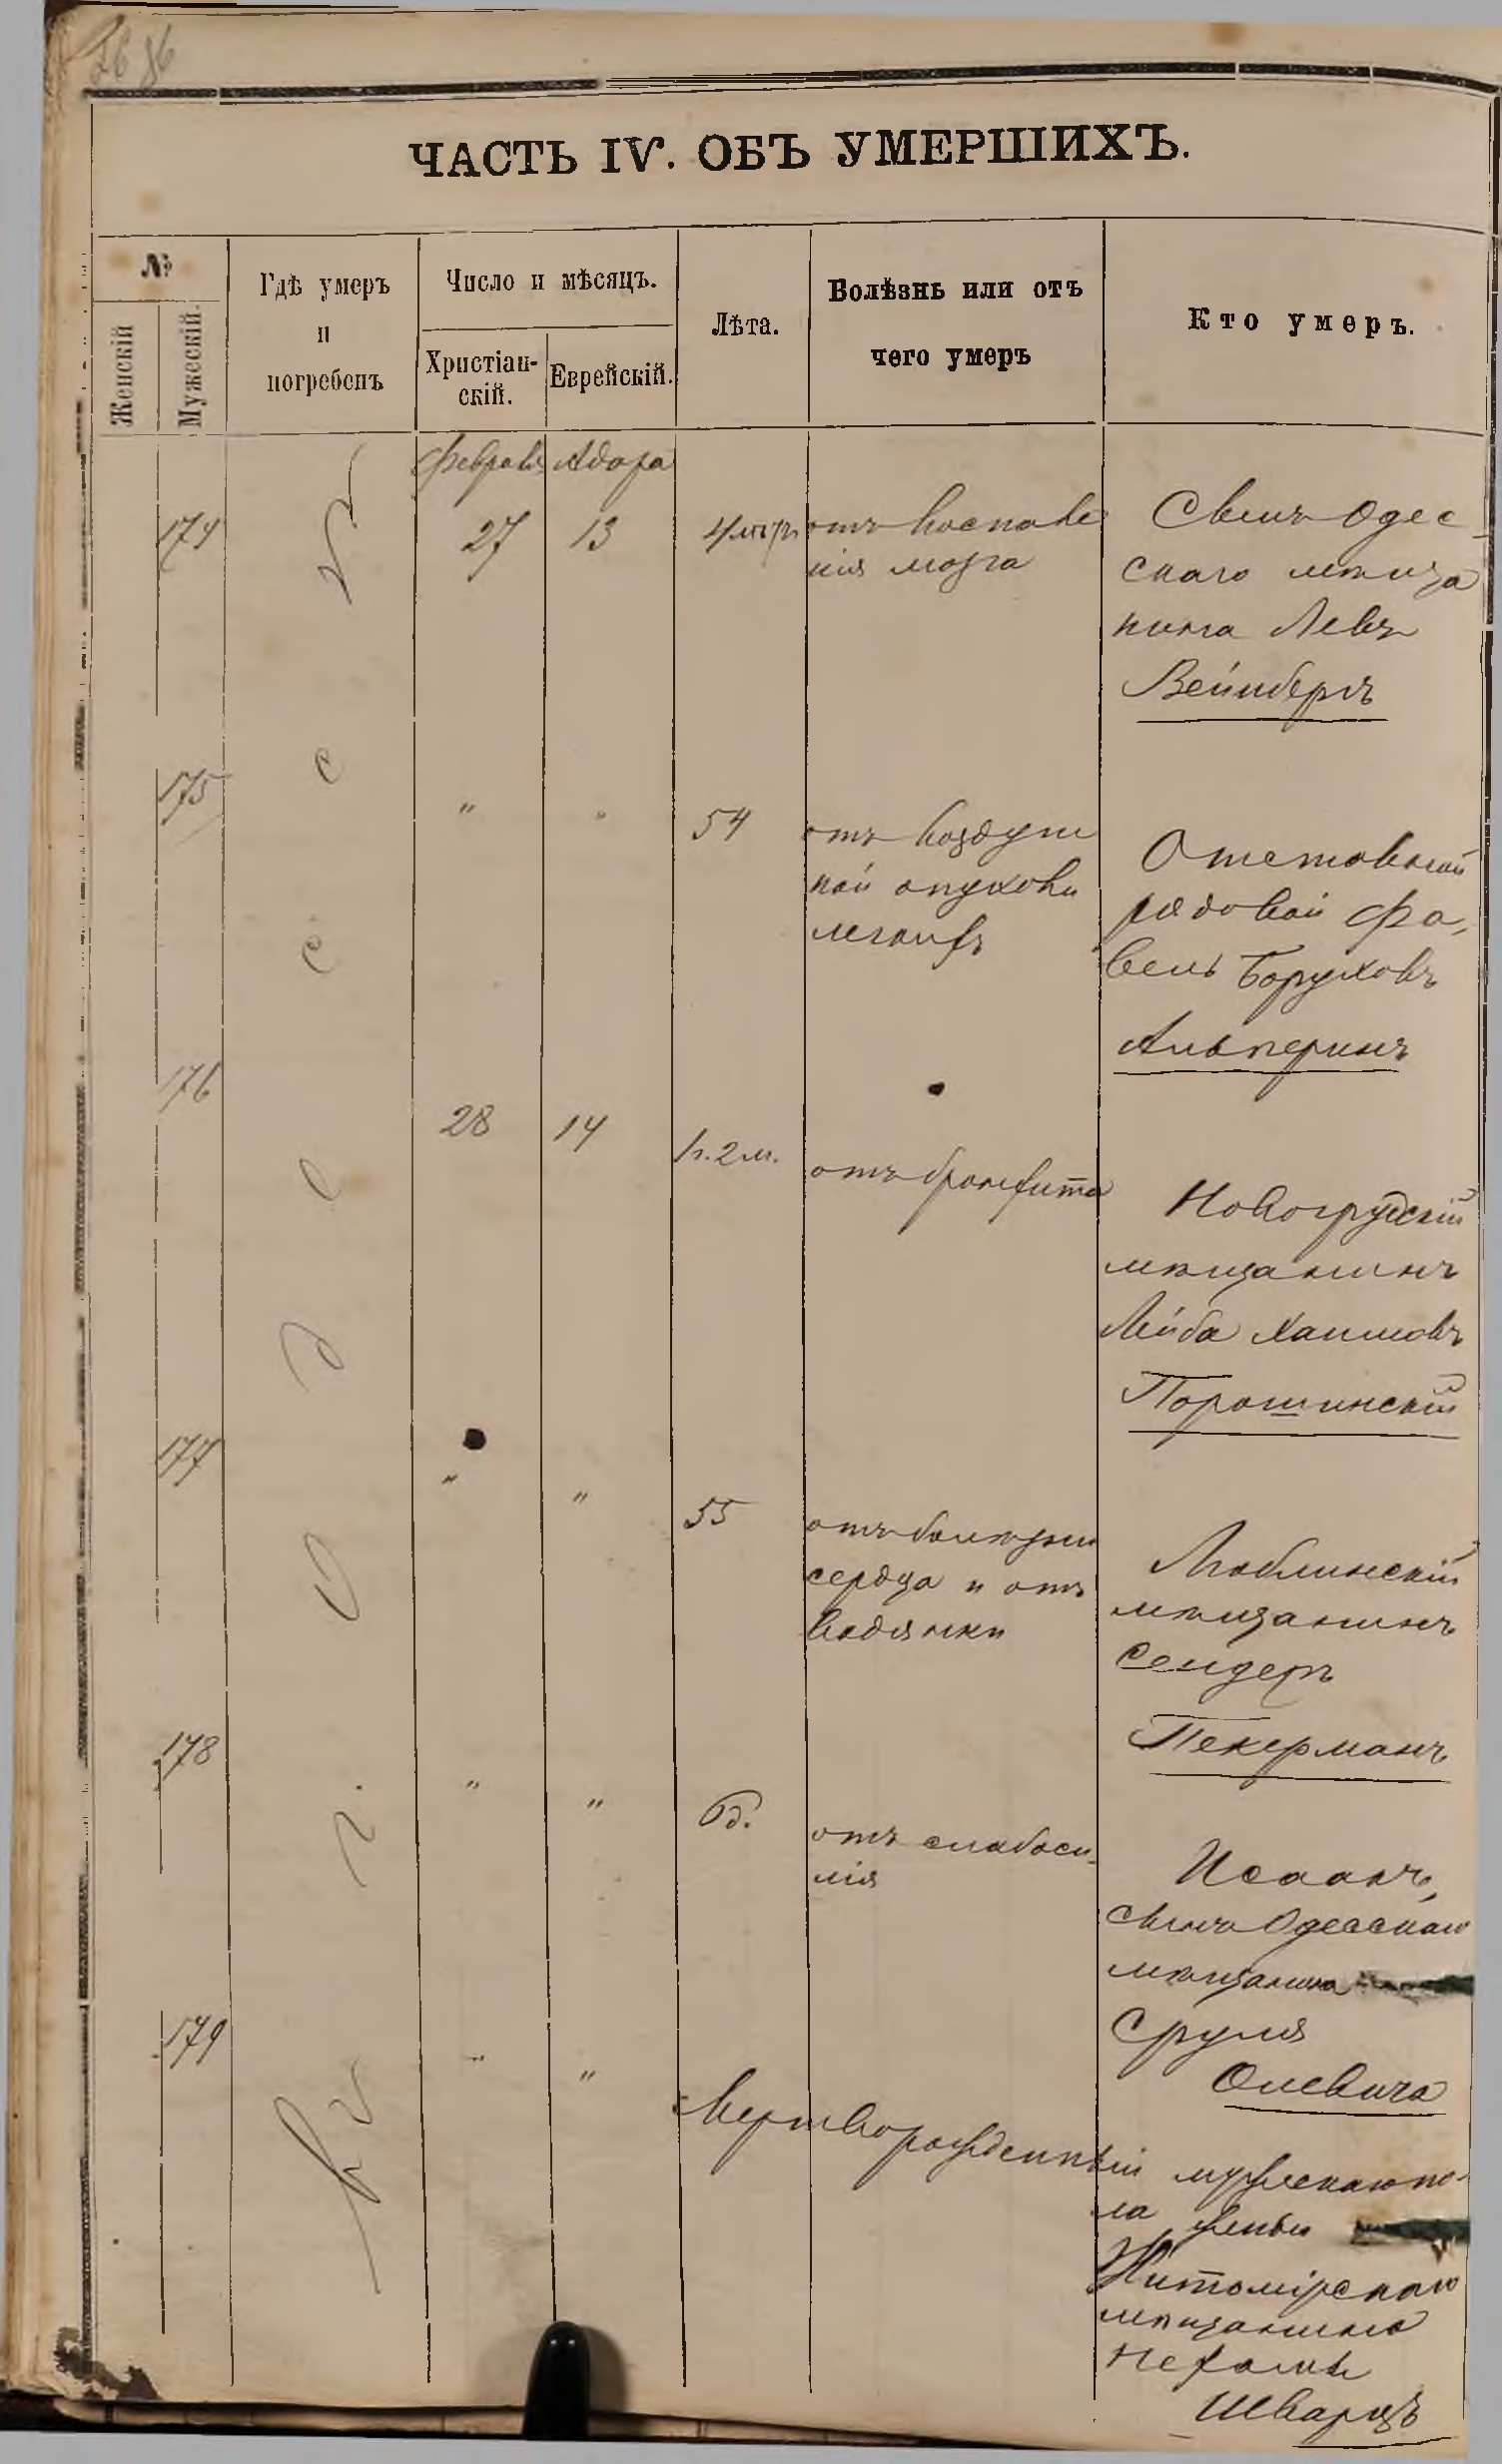 86
ЧАСТЬ IV. ОБЪ УМЕРШИХЪ.
№
Женскій
Мужескій.
Гдѣ умеръ
и
погребенъ
Число и мѣсяцъ.
Христіан-
скій.
Еврейскій.
Лѣта.
Болѣзнь или отъ
чего умеръ
Кто умеръ.
Февраля Адара
174
27
13
4 мѣс.
отъ воспале
нія мозга
Сынъ Одес
скаго мѣща
нина Левъ
Вейнбергъ
175
"
"
54
отъ воздуш
ной опухоли
легкихъ
Отставной
рядовой Фа,
вель Боруховъ
Альперинъ
176
28
14
1 г. 2 м.
отъ бронхита
Новогрудскій
мѣщанинъ
Лейба Хаимовъ
Порошинскій
177
"
"
55
отъ болѣзни
сердца и отъ
водянки
Люблинскій
мѣщанинъ
Сендеръ
Пекерманъ
178
"
"
6 д.
отъ слабоси-
лія
Исаакъ,
сынъ Одесскаго
мѣщанина
Сруля
Олевича
179
"
"
Мертворожденный мужескаго по-
ла жены
Житомірскаго
мѣщанина
Нехомы
Шварцъ